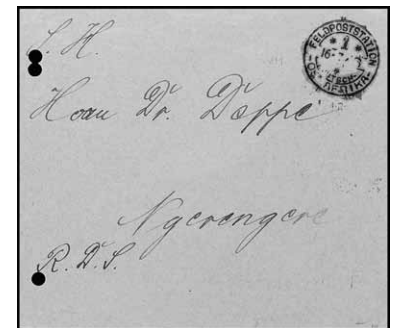 FELDPOSTSTATION
1
16
DTSCH.
OSTAFRIKA
S. H.
Herrn Dr. Deppe
Ngerengere
R. D. S.